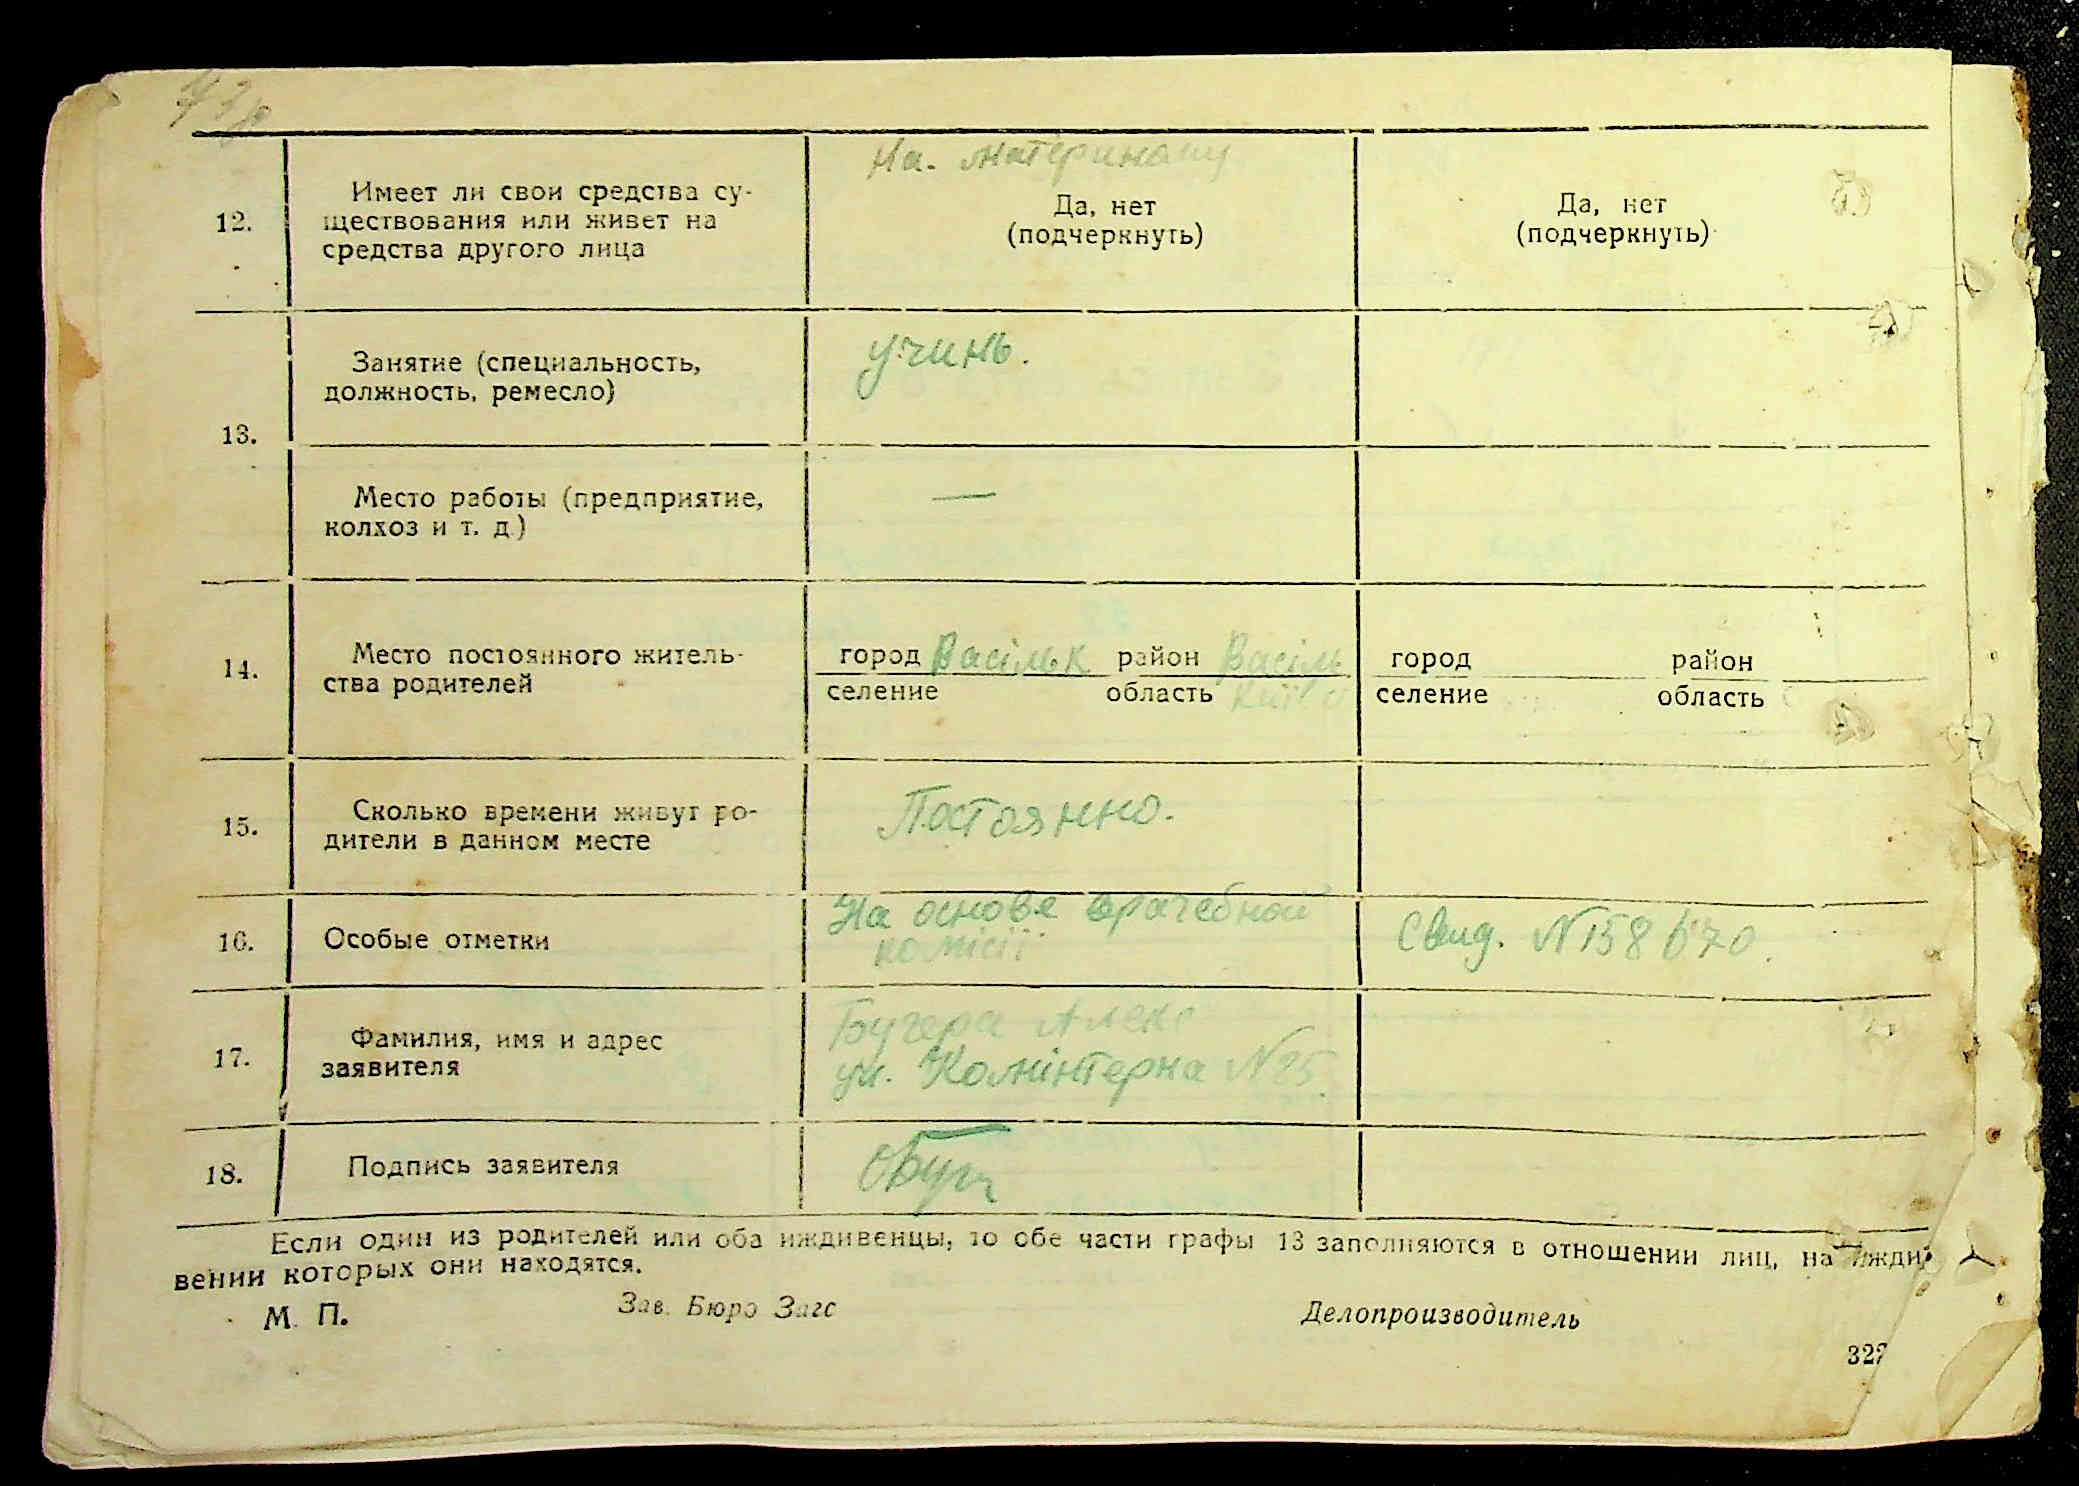 12.
Имеет ли свои средства су-
ществования или живет на
средства другого лица
На. материному
Да, нет
(подчеркнуть)
Да, нет
(подчеркнуть)
13.
Занятие (специальность,
должность, ремесло)
учинь.
Место работы (предприятие,
колхоз и т. д.)
—
14.
Место постоянного житель-
ства родителей
город Васільк район Васіль
селение область Київ
город район
селение область
15.
Сколько времени живут ро-
дители в данном месте
Постоянно.
16.
Особые отметки
На основе врачебной
комісії
Свид. N 158670.
17.
Фамилия, имя и адрес
заявителя
Бугера Алекс
ул. Комінтерна N 25.
18.
Подпись заявителя
Если один из родителей или оба иждивенцы, то обе части графы 13 заполняются в отношении лиц, на ижди
вении которых они находятся.
М. П.
Зав. Бюро Загс
Делопроизводитель